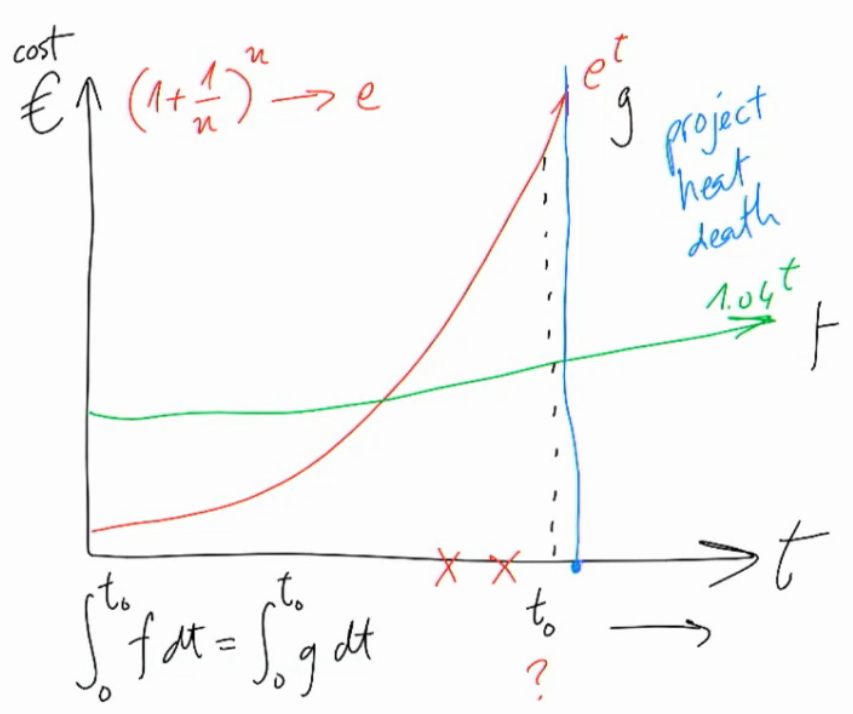 cost
€
(1+1/n)^n → e
e^t
g
project
heat
death
1.04^t
f
t
t₀
?
∫₀^t₀ f dt = ∫₀^t₀ g dt